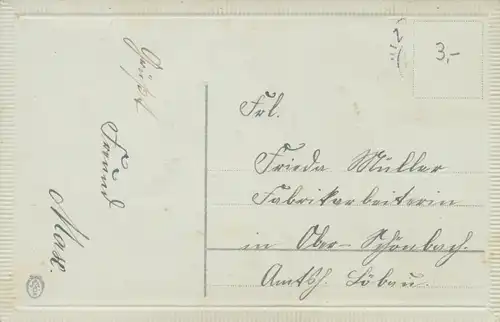 Grüßt
Freund
Max.
3,-
Frl.
Frieda Müller
Fabrikarbeiterin
in Ober-Schönbach.
Amtsh. Löbau.